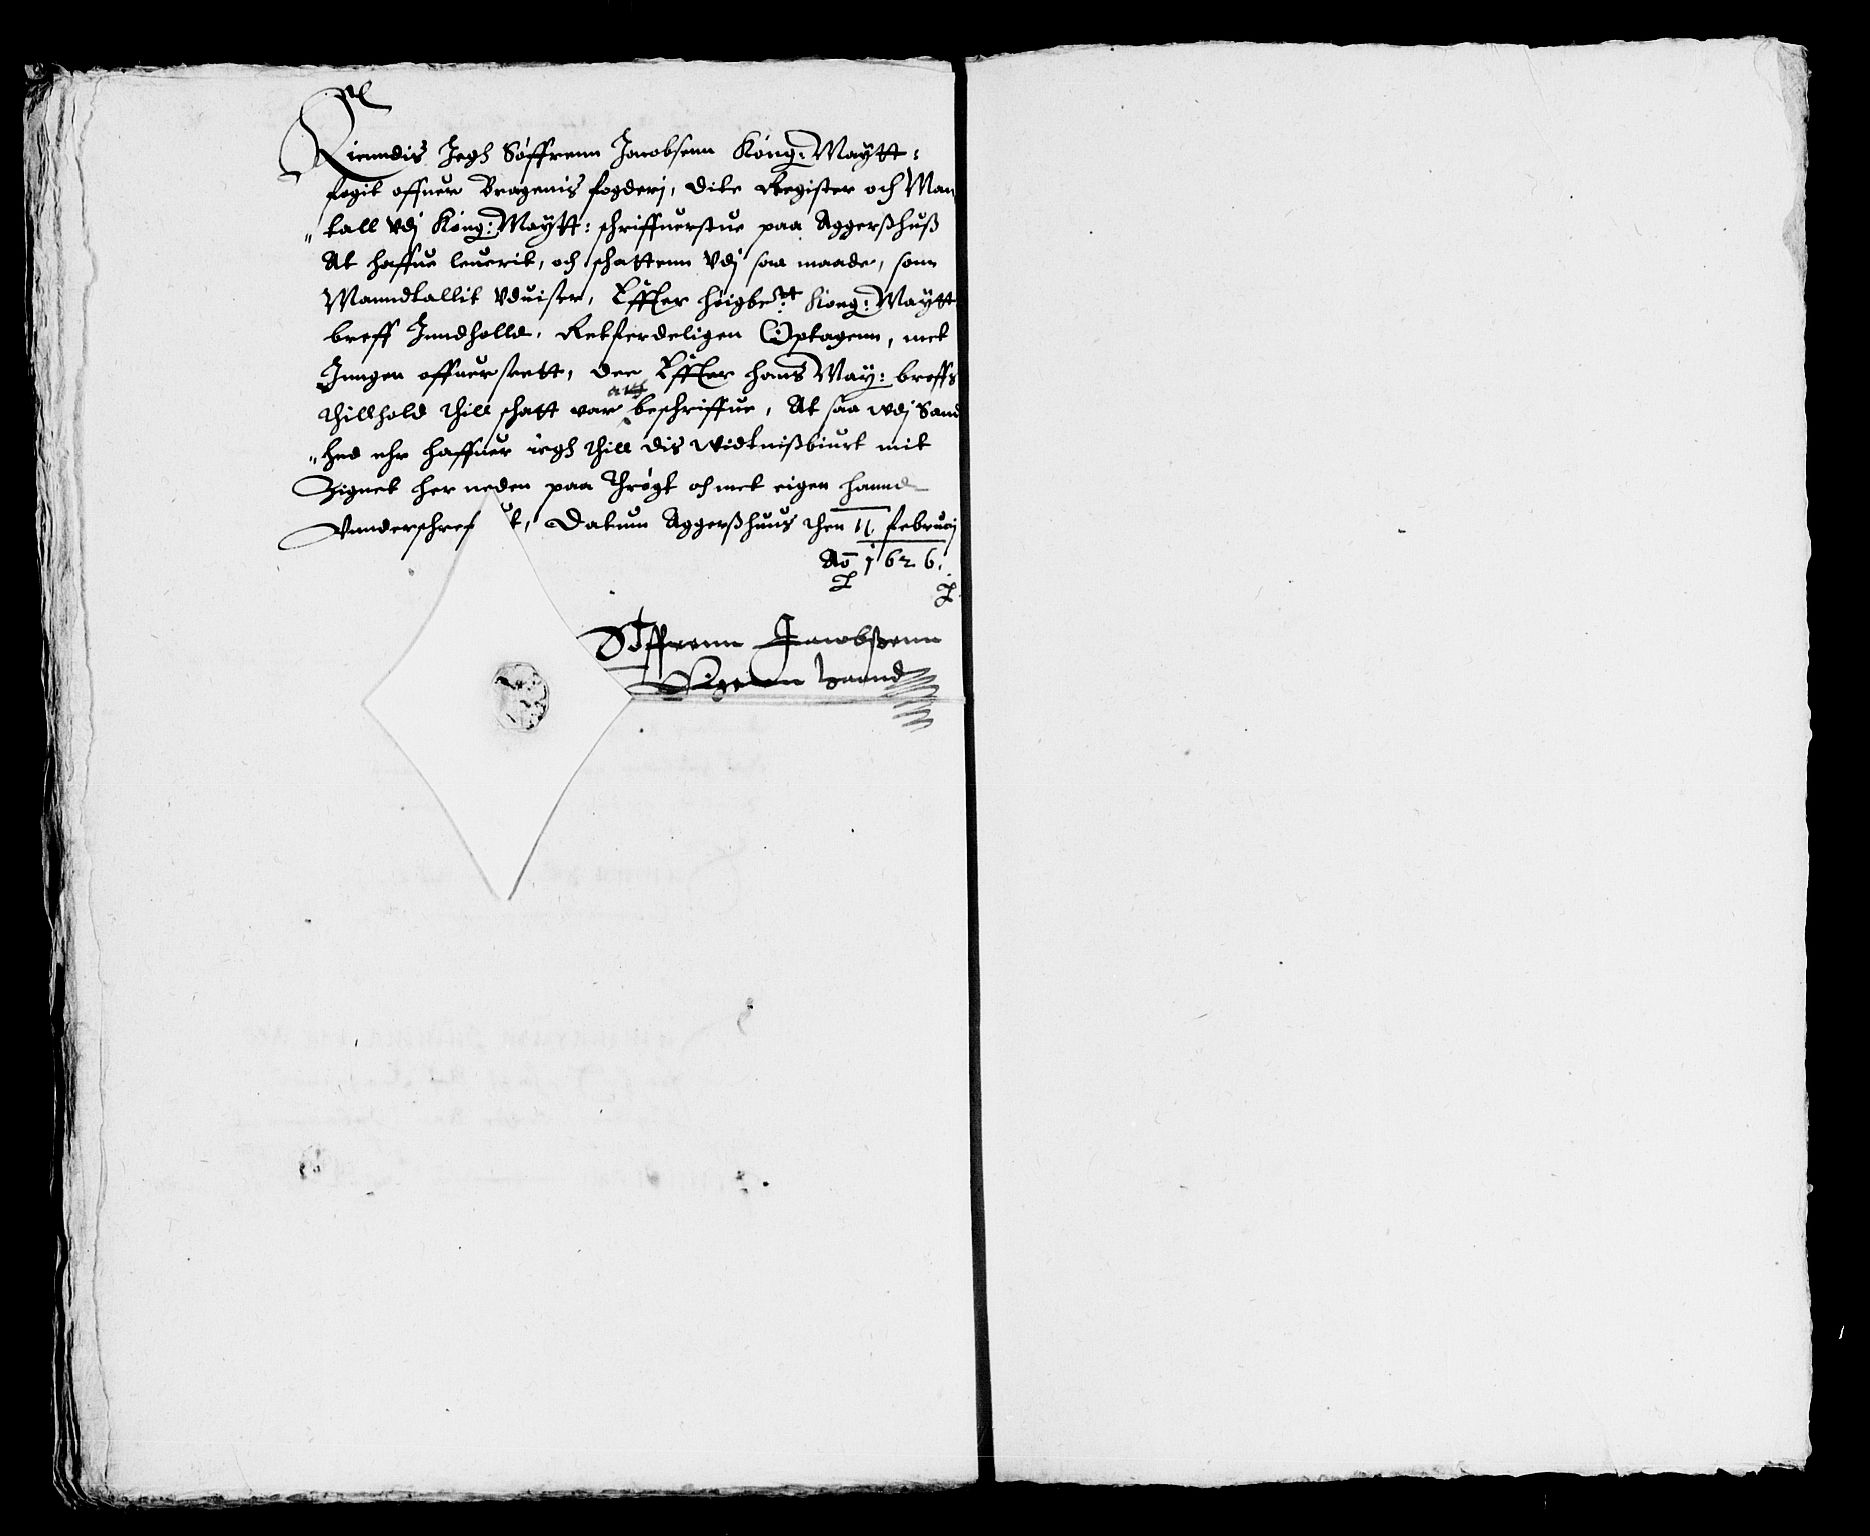 Kienndis Jegh Søffrenn Jacobsenn Kong: Maytt:
fogit offuer Bragenis fogderj, dite Register och Man
"tall vdj Kong: Maytt: schriffuerstue paa Aggerßhuß
At haffue leuerit, och schattenn vdj saa maade, som
Manndtallit vduiser, Effter høigbe:tt Kong: Maytt
breff Jnndholld, Retferdeligen Optagenn, met
Jnngen offuersett, der Effter hans May: breffs
thillhold thill schatt var beschriffue, At saa wdj Sand
"hed ehr haffuer iegh thill dis widtnißbiurt mit
Zignet her neden paa thrøgt och met eigen hannd
Vnderschref t, Datum Aggerßhuus then 11 februarij
Ao 1626.
Søffrenn Jacobsenn
Eigenn haand